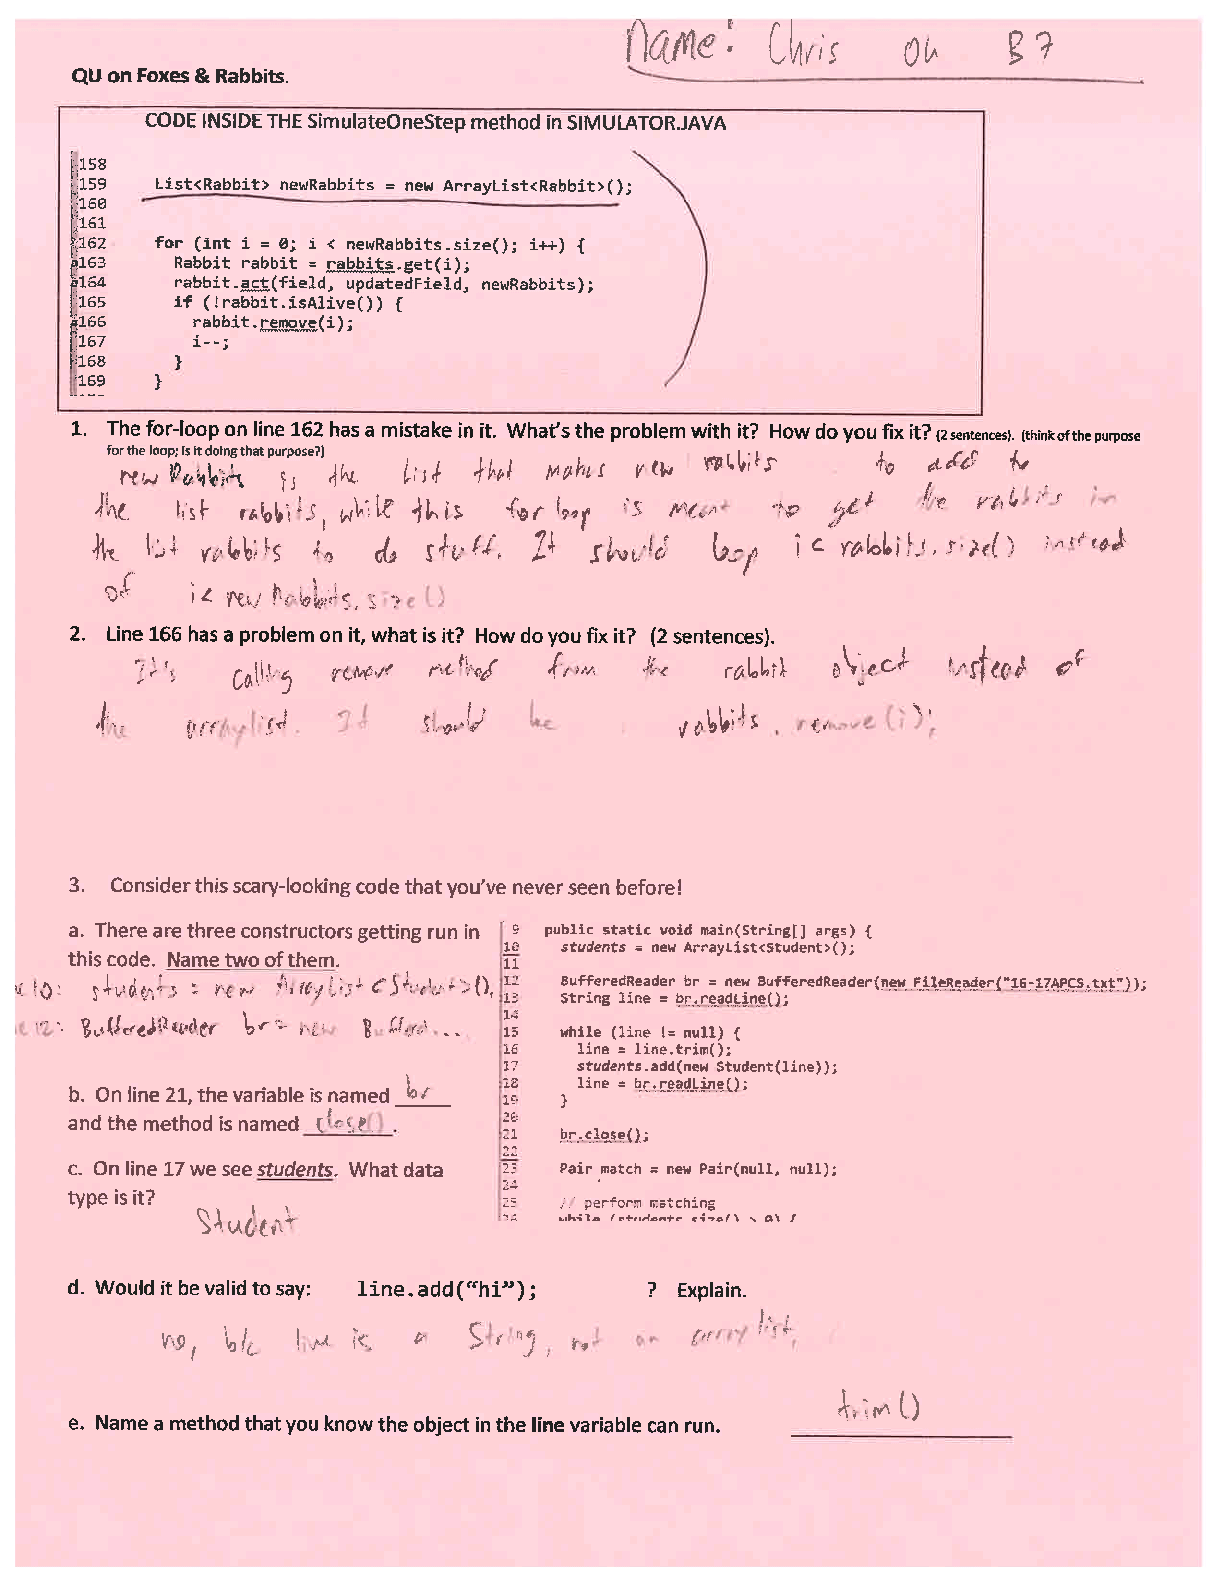 Name: Chris Oh B7
QU on Foxes & Rabbits.
CODE INSIDE THE SimulateOneStep method in SIMULATOR.JAVA
158
159 List<Rabbit> newRabbits = new ArrayList<Rabbit>();
160
161
162 for (int i = 0; i < newRabbits.size(); i++) {
163 Rabbit rabbit = rabbits.get(i);
164 rabbit.act(field, updatedField, newRabbits);
165 if (!rabbit.isAlive()) {
166 rabbit.remove(i);
167 i--;
168 }
169 }
1. The for-loop on line 162 has a mistake in it. What's the problem with it? How do you fix it? (2 sentences). (think of the purpose
for the loop; is it doing that purpose?)
new Rabbits is the list that makes new rabbits to add to
the list rabbits, while this for loop is meant to get the rabbits in
the list rabbits to do stuff. It should loop i < rabbits.size() instead
of i < new Rabbits.size()
2. Line 166 has a problem on it, what is it? How do you fix it? (2 sentences).
It's calling remove method from the rabbit object instead of
the arraylist. It should be rabbits.remove(i);
3. Consider this scary-looking code that you've never seen before!
a. There are three constructors getting run in
this code. Name two of them.
10: students = new ArrayList<Student>();
12: BufferedReader br = new Buffered...
b. On line 21, the variable is named br
and the method is named close().
c. On line 17 we see students. What data
type is it?
Student
9 public static void main(String[] args) {
10 students = new ArrayList<Student>();
11
12 BufferedReader br = new BufferedReader(new FileReader("16-17APCS.txt"));
13 String line = br.readLine();
14
15 while (line != null) {
16 line = line.trim();
17 students.add(new Student(line));
18 line = br.readLine();
19 }
20
21 br.close();
22
23 Pair match = new Pair(null, null);
24
25 // perform matching
26 while (students.size() > 0) {
d. Would it be valid to say: line.add("hi"); ? Explain.
no, b/c line is a String, not an arraylist.
e. Name a method that you know the object in the line variable can run. trim()